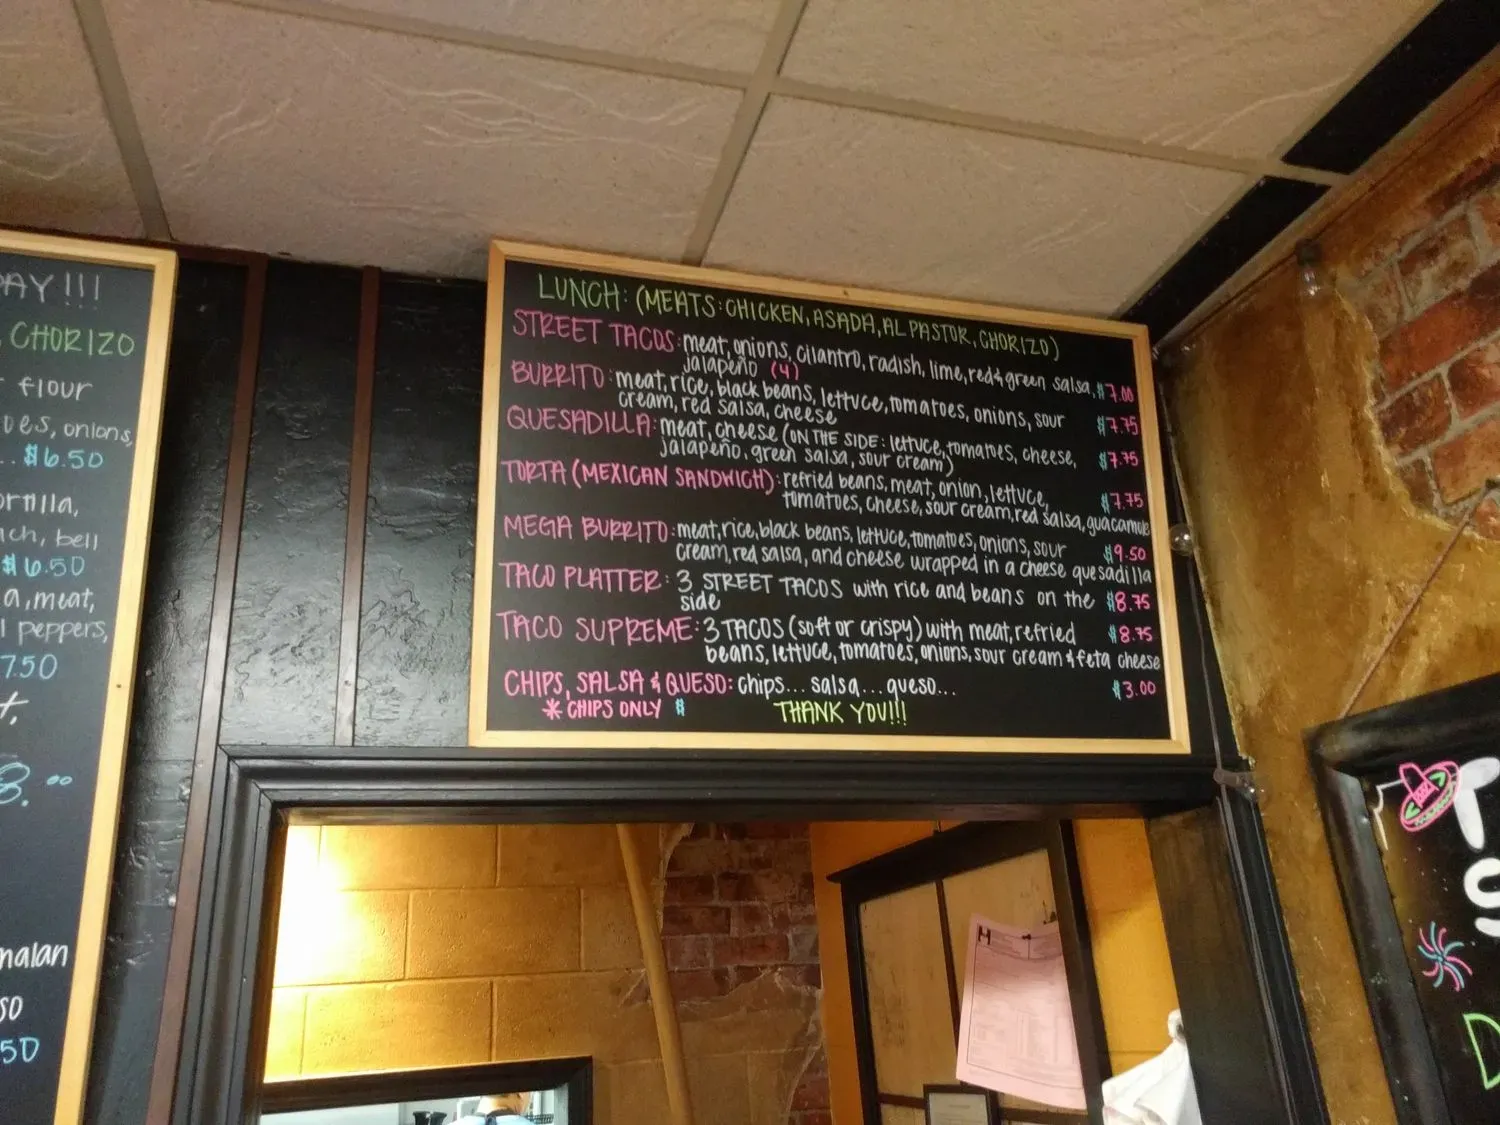 AY!!!
CHORIZO
flour
oes, onions,
.. $6.50
ortilla,
nch, bell
$6.50
a, meat,
l peppers,
7.50
t.
8.00
malan
so
50
LUNCH: (MEATS: CHICKEN, ASADA, AL PASTOR, CHORIZO)
STREET TACOS: meat, onions, cilantro, radish, lime, red & green salsa, $7.00
jalapeño (4)
BURRITO: meat, rice, black beans, lettuce, tomatoes, onions, sour $7.75
cream, red salsa, cheese
QUESADILLA: meat, cheese (ON THE SIDE: lettuce, tomatoes, cheese, $7.75
jalapeño, green salsa, sour cream)
TORTA (MEXICAN SANDWICH): refried beans, meat, onion, lettuce, $7.75
tomatoes, cheese, sour cream, red salsa, guacamole
MEGA BURRITO: meat, rice, black beans, lettuce, tomatoes, onions, sour $9.50
cream, red salsa, and cheese wrapped in a cheese quesadilla
TACO PLATTER: 3 STREET TACOS with rice and beans on the $8.75
side
TACO SUPREME: 3 TACOS (soft or crispy) with meat, refried $8.75
beans, lettuce, tomatoes, onions, sour cream & feta cheese
CHIPS, SALSA & QUESO: chips... salsa... queso... $3.00
* CHIPS ONLY $
THANK YOU!!!
H
T
S
D